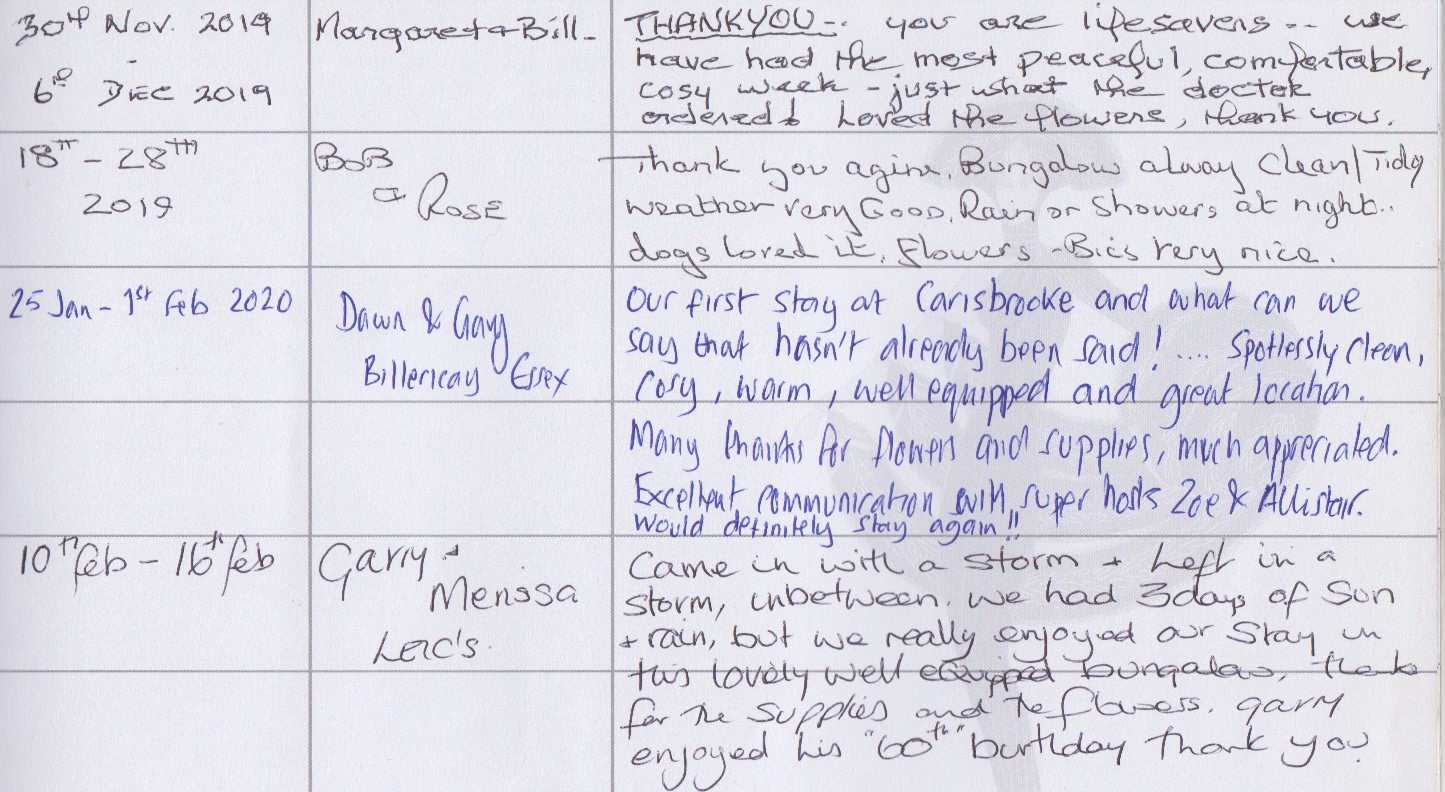 30th Nov. 2019
-
6th DEC 2019
Margaret + Bill -
THANKYOU -.. you are lifesavers -- we
have had the most peaceful, comfortable,
cosy week - just what the doctor
ordered! Loved the flowers, thank you.
18TH - 28TH
2019
BOB
& ROSE
Thank you agine, Bungalow alway Clean/Tidy
weather very Good, Rain or Showers at night..
dogs loved it, Flowers - Bics very nice.
25 Jan - 1st Feb 2020
Dawn & Gary
Billericay Essex
Our first stay at Carisbrooke and what can we
say that hasn't already been said! .... Spotlessly clean,
cosy, warm, well equipped and great location.
Many thanks for flowers and supplies, much appreciated.
Excellent communication with super hosts Zoe & Allistair.
Would definitely stay again!!
10th feb - 16th feb
Garry +
Menssa
Leic's.
Came in with a storm + Left in a
storm, inbetween. we had 3days of Sun
+ rain, but we really enjoyed our Stay in
this lovely well equipped bungalow, thanks
for The Supplies and The flowers. garry
enjoyed his "60th" birthday Thank you